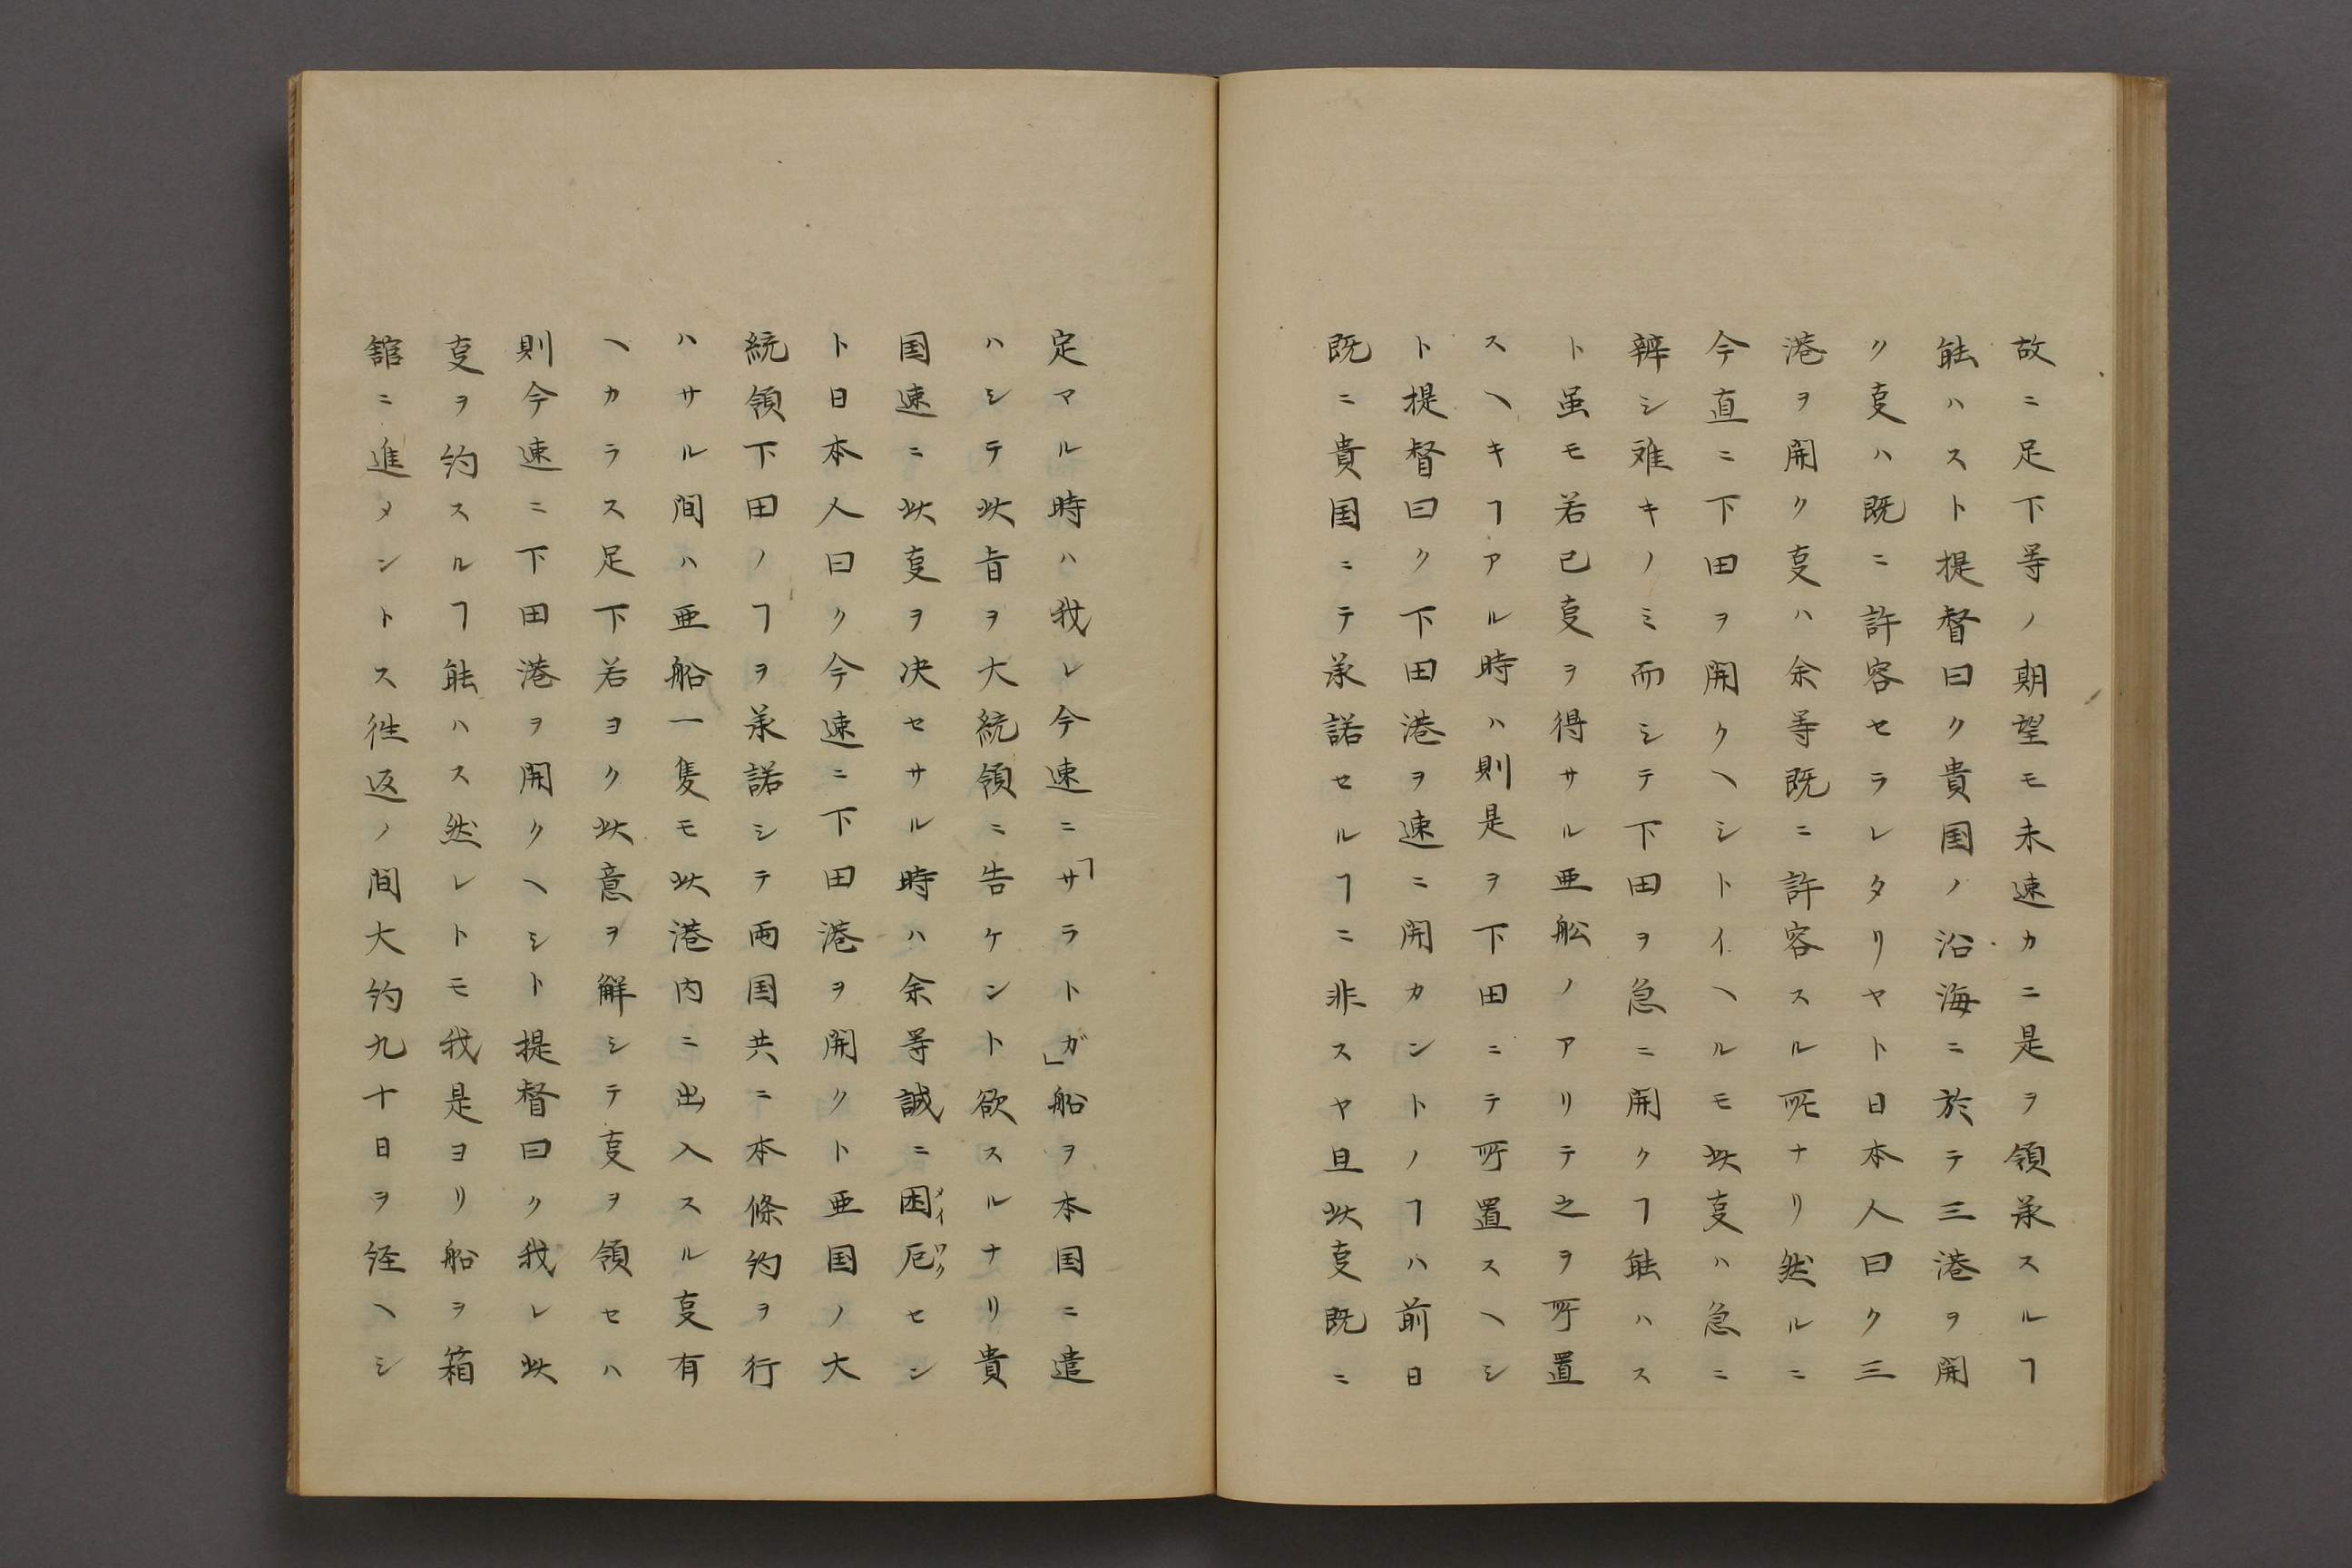 故ニ足下等ノ期望モ未速カニ是ヲ領承スルヿ
能ハスト提督曰ク貴国ノ沿海ニ於テ三港ヲ開
ク叓ハ既ニ許容セラレタリヤト日本人曰ク三
港ヲ開ク叓ハ余等既ニ許容スル所ナリ然ルニ
今直ニ下田ヲ開クヘシトイヘルモ此叓ハ急ニ
辨シ难キノミ而シテ下田ヲ急ニ開クヿ能ハス
ト虽モ若已叓ヲ得サル亜舩ノアリテ之ヲ所置
スヘキヿアル時ハ則是ヲ下田ニテ所置スヘシ
ト提督曰ク下田港ヲ速ニ開カントノヿハ前日
既ニ貴国ニテ承諾セルヿニ非スヤ且此叓既ニ
定マル時ハ我レ今速ニ「サラトガ」船ヲ本国ニ遣
ハシテ此旨ヲ大統領ニ告ケント欲スルナリ貴
国速ニ此叓ヲ决セサル時ハ余等誠ニ困厄セン
メイワク
ト日本人曰ク今速ニ下田港ヲ開クト亜国ノ大
統領下田ノヿヲ承諾シテ両国共ニ本條約ヲ行
ハサル間ハ亜船一隻モ此港内ニ出入スル叓有
ヘカラス足下若ヨク此意ヲ解シテ叓ヲ領セハ
則今速ニ下田港ヲ開クヘシト提督曰ク我レ此
叓ヲ約スルヿ能ハス然レトモ我是ヨリ船ヲ箱
舘ニ進メントス徃返ノ間大約九十日ヲ経ヘシ